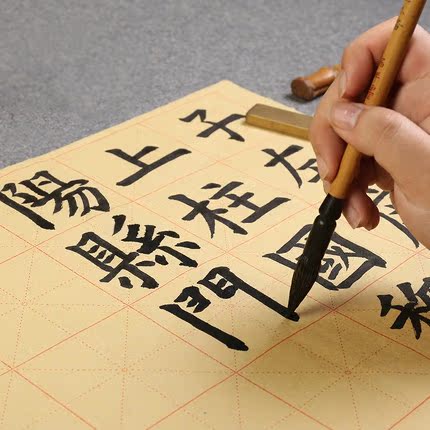 子左
上柱國
陽縣門